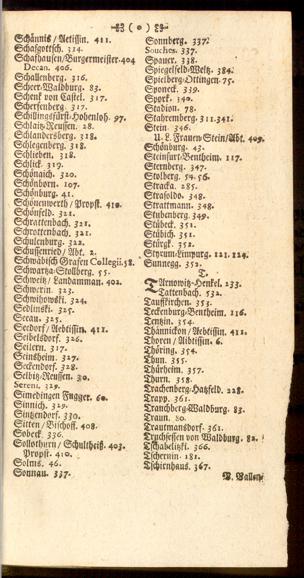 ( o )
Schännis / Aebtissin. 411.
Schafgottsch. 314.
Schafhausen / Burgermeister 404
Decan. 406.
Schallenberg. 316.
Scheer-Waldburg. 83.
Schenk von Castel. 317.
Scherfenberg. 317.
Schillingsfürst-Hohenloh. 97.
Schlaitz-Reussen. 28.
Schlandersberg. 318.
Schlegenberg. 318.
Schlieben. 318.
Schlick. 319.
Schönaich. 320.
Schönborn. 107.
Schönburg. 41.
Schönenwerth / Propst. 410.
Schönfeld. 321.
Schrattenbach. 321.
Schrottenbach. 321.
Schulenburg. 322.
Schussenried / Abt. 2.
Schwäbisch Grafen Collegii. 58.
Schwartza-Stollberg. 55.
Schweitz / Landamman. 402.
Schwerin. 323.
Schwihowski. 324.
Sedlinski. 325.
Seeau. 325.
Seedorf / Aebtissin. 411.
Seibelsdorf. 326.
Seilern. 317.
Seinsheim. 327.
Seckendorf. 328.
Selbitz-Reussen. 30.
Sereni. 329.
Simedingen Fugger. 60.
Sinnich. 329.
Sintzendorf. 330.
Sitten / Bischoff. 408.
Sobeck. 336.
Sollothurn / Schultheiß. 403.
Propst. 410.
Solms. 46.
Sonnau. 337.
Sonnberg. 337.
Souches. 337.
Spauer. 338.
Spiegelfeld-Weltz. 384.
Spielberg-Ottingen. 75.
Sponeck. 339.
Spork. 340.
Stadion. 78.
Stahremberg. 311. 341.
Stein. 346.
U. L. Frauen Stein / Abt. 409.
Schönburg. 43.
Steinfurt-Bentheim. 117.
Sternberg. 347.
Stolberg. 54. 56.
Straka. 285.
Strasoldo. 348.
Strattmann. 348.
Stubenberg. 349.
Stübeck. 351.
Stübich. 351.
Stürgk. 352.
Styrum-Limpurg. 121. 124.
Sunnegg. 352.
T.
Tarnowitz-Henkel. 233.
Tattenbach. 532.
Taufkirchen. 353.
Teckenburg-Bentheim. 116.
Tentzin. 354.
Thännickon / Aebtissin. 411.
Thoren / Abtissin. 6.
Thöring. 354.
Thun. 355.
Thürheim. 357.
Thurn. 358.
Trachenberg-Hatzfeld. 228.
Trapp. 361.
Trauchberg-Waldburg. 83.
Traun. 80.
Trautmansdorf. 361.
Truchsessen von Waldburg. 82.
Tschabelitzki. 366.
Tschernin. 181.
Tschirnhaus. 367.